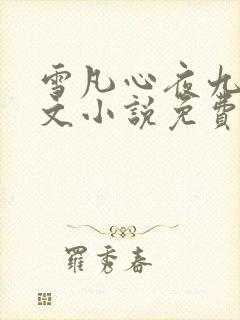 雪凡心夜九
文小說免費
羅秀春